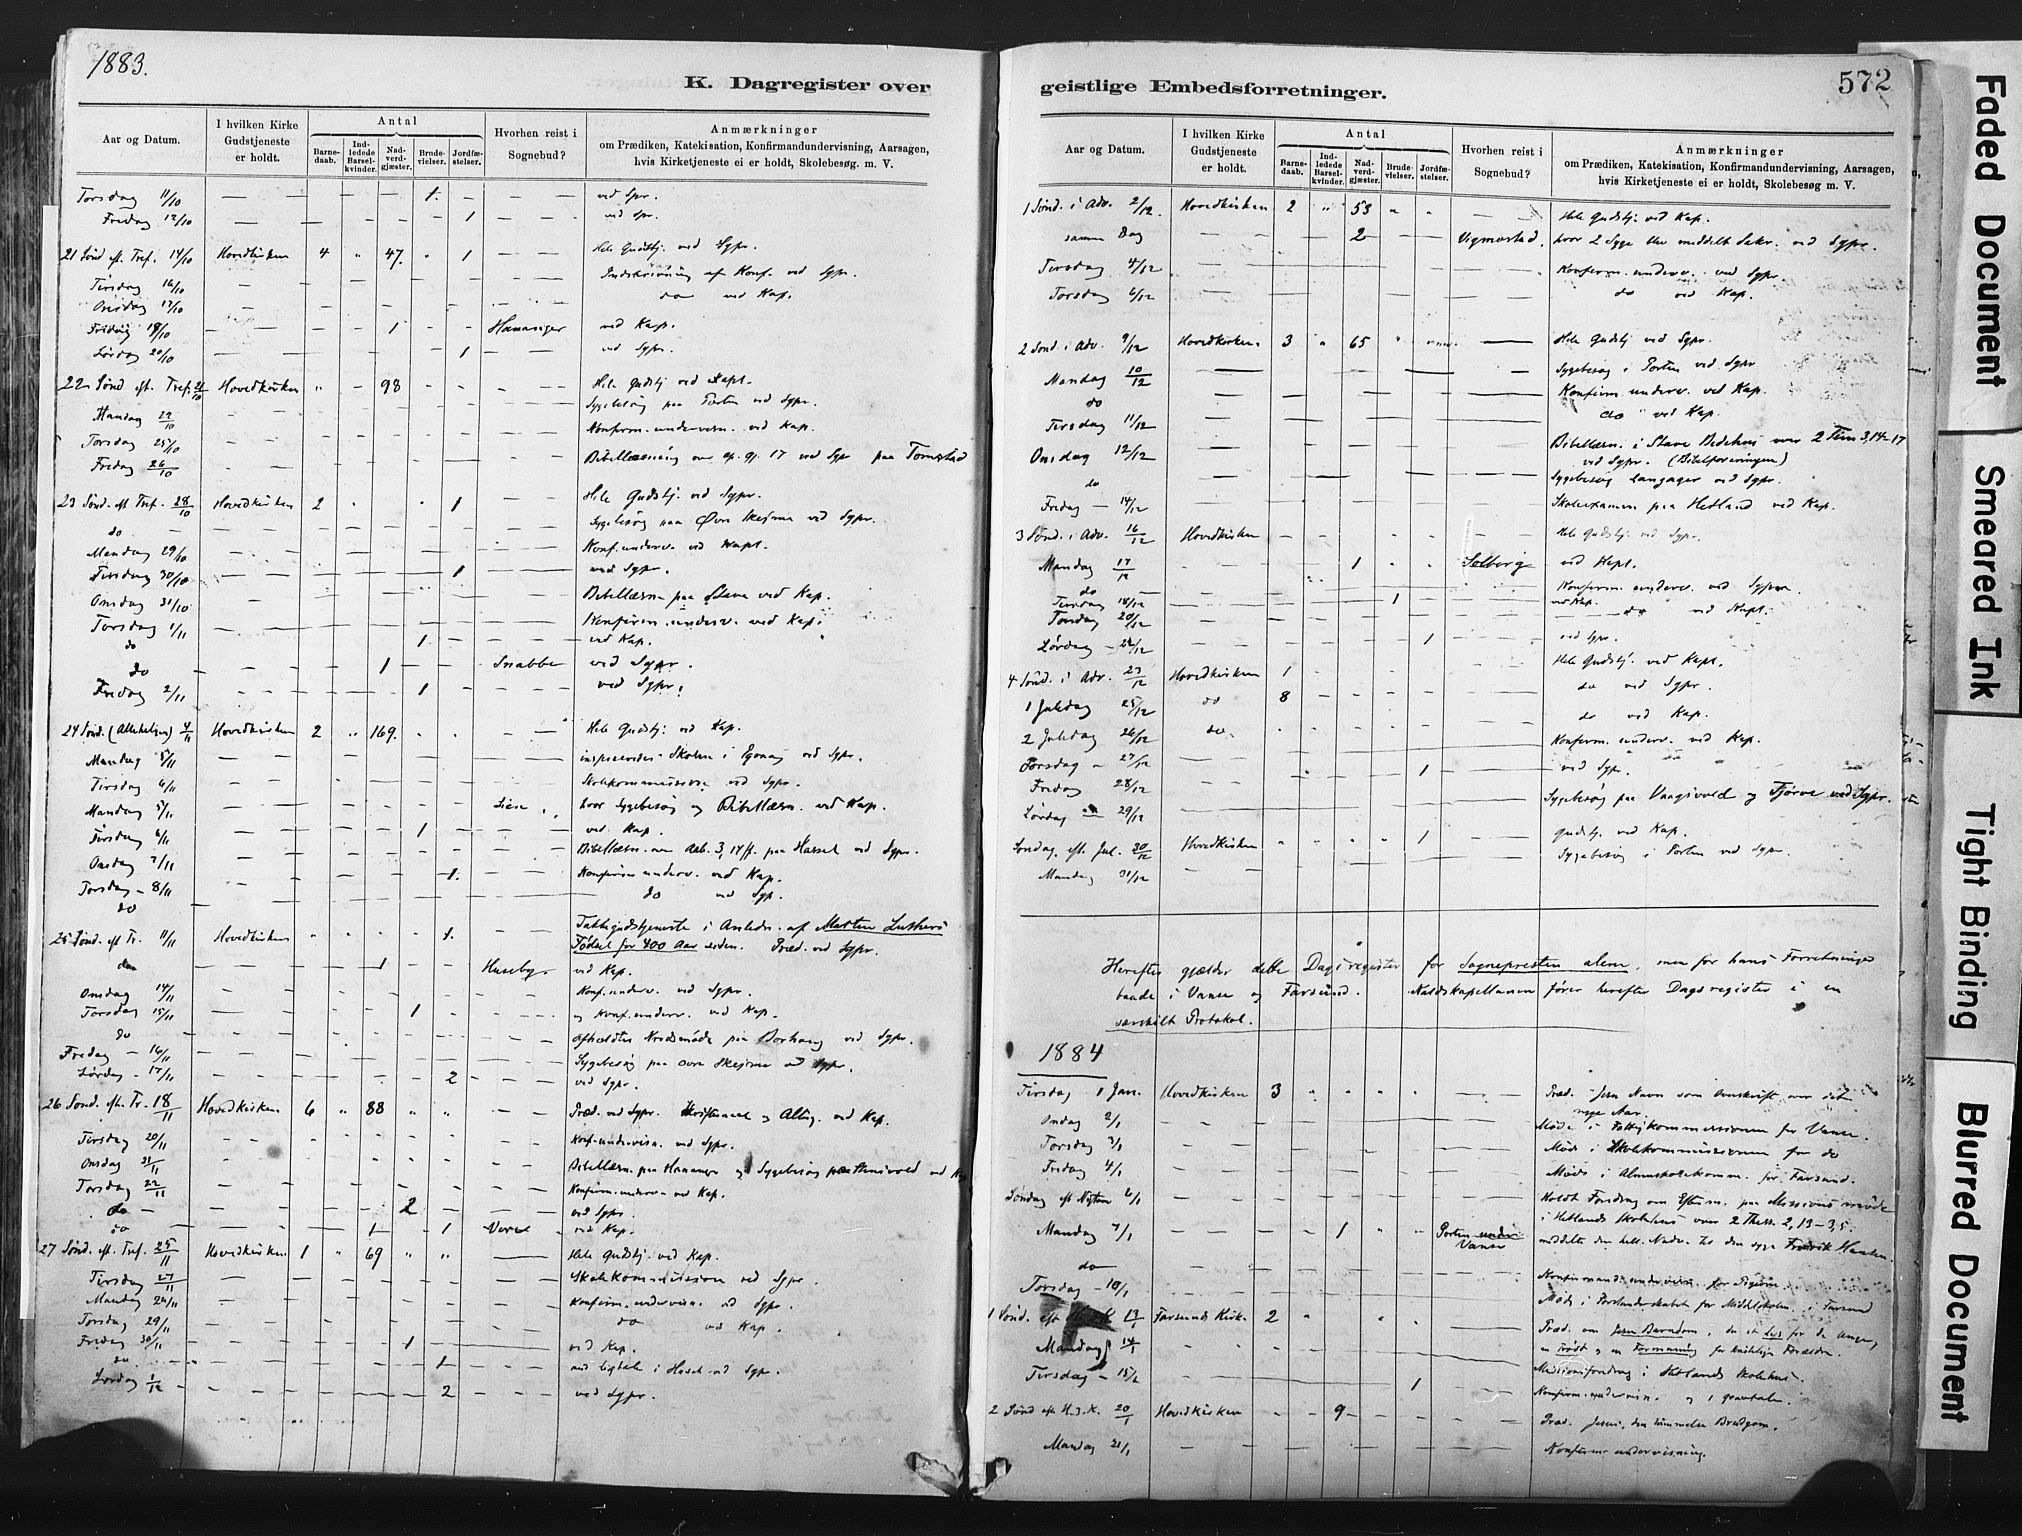 1883.
K. Dagregister over
Aar og Datum.
I hvilken Kirke Gudstjeneste er holdt.
Antal
Barne-daab.
Ind-ledede Barsel-kvinder.
Nad-verd-gjæster.
Brude-vielser.
Jordfæ-stelser.
Hvorhen reist i Sognebud?
Anmærkninger
om Prædiken, Katekisation, Konfirmandundervisning, Aarsagen,
hvis Kirketjeneste ei er holdt, Skolebesøg. m. V.
Torsdag 11/10 — — 1. — ved Spr.
Fredag 12/10 — — 1 — ved Spr.
21 Sønd. eft. Tref. 14/10 Hovedkirken 4 " 47. 1 — Hele Gudstj. ved Sgpr.
Tirsdag 16/10 — Indskrivning af Konf. ved Spr.
Onsdag 17/10 — do ved Kap.
Fredag 19/10 — 1 — ved Kap.
Lørdag 20/10 — 1 — ved Sgpr.
22 Sønd eft. Tref. 21/10 Hovedkirken " — 98 — Hele Gudstj. ved Kapl.
Sygebesøg paa Porten ved Sgpr.
Mandag 22/10 — Konfirm. undervisn. ved Kap.
Torsdag 25/10
Fredag 26/10 — Bibellæsning ved Sgpr paa Tomstad
23 Sønd. eft Tref. 28/10 Hovedkirken 2 1 — Hele Gudstj. ved Sgpr.
do — Sygebesøg paa Øvre Skeime ved Sgpr.
Mandag 29/10 — Konf. underv. ved Kapl.
Tirsdag 30/10 — 1 — ved Sgpr.
Onsdag 31/10 — Bibellæsn paa Stave ved Kap.
Torsdag 1/11 — Konfirm. underv. ved Kap.
do — 1 — ved Kap.
do — 1 — Snabbe ved Sgpr.
Fredag 2/11 — 1 — ved Sgpr.
24 Sønd. (Allehelgen) 4/11 Hovedkirken 2 " 169. — Hele Gudstj. ved Kap.
Mandag 5/11 — Skolen i ved Sgpr.
Tirsdag 6/11 — Skolekommission ved Sgpr.
Mandag 5/11 — hvor Sygebesøg og Bibellæsn. ved Kap.
Tirsdag 6/11 — 1 — ved Kap.
Onsdag 7/11 — Bibellæsn. paa Hassel ved Sgpr.
Torsdag — 8/11 — 1. — Konfirm underv. ved Kap.
do — do ved Sgp.
25 Sønd. eft Tr. 11/11 Hovedkirken 1. Takkegudstjeneste i Anledn. af Martin Luthers
Fødsel for 400 Aar siden. Præd. ved Sgpr.
do — 1 — Huseby — ved Kap.
Onsdag 14/11 — Konf. underv. ved Sgpr.
Torsdag 15/11 — 1 — og Konf. underv. ved Kap.
do — afholdtes paa Borhaug ved Sgpr.
Fredag — 16/11 — Sygebesøg paa Skeime ved Sgpr.
Lørdag — 17/11 — 2 — ved Sgpr.
26 Sønd. eft. Tr. 18/11 Hovedkirken 6 " 88 " " — Præd. ved Sgpr. og Altg. ved Kap.
Tirsdag 20/11 — Konf. undervisn. ved Sgpr.
Onsdag 21/11 — Bibellæsn. paa og Sygebesøg ved
Torsdag 22/11 — Konfirm. underv. ved Kap.
do — 2 — ved Sgpr.
do — 1 — 1 ved Kap.
27 Sønd. eft. Tref. 25/11 Hovedkirken 1 " 69 " " — Hele Gudstj. ved Kap.
Tirsdag 27/11 — Skolekommission ved Sgpr.
Mandag 26/11 — Konfirm. undervisn. ved Sgpr.
Torsdag 29/11 — do ved Kap.
Fredag 30/11 — 1 — ved Kap.
do — 1 — i ved Sgpr.
Lørdag 1/12 — 2 — ved Sgpr.
geistlige Embedsforretninger.
572
Aar og Datum.
I hvilken Kirke Gudstjeneste er holdt.
Antal
Barne-daab.
Ind-ledede Barsel-kvinder.
Nad-verd-gjæster.
Brude-vielser.
Jordfæ-stelser.
Hvorhen reist i Sognebud?
Anmærkninger
om Prædiken, Katekisation, Konfirmandundervisning, Aarsagen,
hvis Kirketjeneste ei er holdt, Skolebesøg m. V.
1 Sønd. i Adv. 2/12. Hovedkirken 2 " 53 " " — Hele Gudstj. ved Kap.
samme Dag — 2 — Vigmostad. hvor 2 Syge blev meddelt Sakr. ved Sgpr.
Tirsdag 4/12 — Konfirm. underv. ved Sgpr.
Torsdag 6/12 — do ved Kap.
2 Sønd. i Adv. 9/12 Hovedkirken 3 " 65 " — Hele Gudstj ved Sgpr.
Mandag 10/12 — Sygebesøg i Porten ved Sgpr
do — Konfirm. underv. ved Kap.
Tirsdag 11/12 — do ved Kap.
Onsdag 12/12 — Bibellæsn. i Stave Bedehus over 2 Tim 3,14–17
ved Sgpr. (Bibelforeningen)
do — Sygebesøg Langager ved Sgpr.
Fredag — 14/12 — Skoleexamen paa Hetland ved Kap.
3 Sønd. i Adv. 16/12 Hovedkirken — Hele Gudstj. ved Sgpr.
Mandag 17/12 — 1 — Solberg ved Kapl.
do — Konfirm. underv. ved Sgpr.
Tirsdag 18/12 — 1 — ved Kap.
Torsdag 20/12 — do ved Kapl.
Lørdag — 22/12 — 1 — ved Sgpr.
4 Sønd. i Adv. 23/12 Hovedkirken 1 — Hele Gudstj. ved Kapl.
1 Juledag 25/12 do 8 — do ved Sgpr.
2 Juledag 26/12 do — do ved Kap.
Torsdag — 27/12 — Konfirm. underv. ved Kap.
Fredag 28/12 — 1 — ved Sgp.
Lørdag — 29/12 — Sygebesøg paa Vaagsvold og Tjørve ved Sgpr.
Søndag eft. Jul. 30/12 Hovedkirken 1 — Gudstj. ved Kap.
Mandag 31/12 — Sygebesøg i Porten ved Sgpr.
Herefter gjælder dette Dagsregister for Sognepresten alene, men for hans Forretninger
baade i Vanse og Farsund. Kapellanen fører herefter Dagsregister i en
særskilt Protokol.
1884
Tirsdag 1 Jan. Hovedkirken 3 — Præd. Jesu Navn som Overskrift over det
nye Aar.
Onsdag 2/1 — Møde i Fattigkommissionen for Vanse.
Torsdag 3/1 — Møde i Skolekommissionen for do
Fredag 4/1 — Møde i Almueskolekomm. for Farsund.
Søndag eft Nytaar 6/1 — Holdt Foredrag om Efterm. paa Missionsmøde
i Hetlands Skolehus over 2 Thess. 2, 13–3,5.
Mandag 7/1 — 1 " " Porten under Vanse meddelte den hell. Nadv. til den syge Fredrik Hansen.
do — Konfirmandundervisn. for Pigerne
Torsdag — 10/1 — Møde i Forstanderskabet for Middelskolen i Farsund
1 Sønd. eft 13/1 Farsunds Kirke 2 — Præd. om Jesu Barndom, den et Lys for de unge,
en Trøst og en Formaning for kristelige Forældre.
Mandag 14/1 — Missionsforedrag i Hetlands Skolehus.
Tirsdag — 15/1 — 1 — Konfirm. undervisn. og 1 Gravtale.
2 Sønd eft H.3.K. 20/1 Hovedkirken — 9 — Præd. Jesus, den himmelske Brudgom.
Mandag 21/1 — Konfirm. undervisning.
Faded Document
Smeared Ink
Tight Binding
Blurred Document